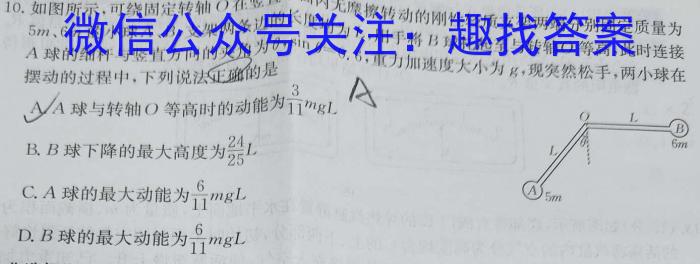 10. 如图所示,可绕固定转轴O在竖直 内无摩擦转动的刚 质量为
微信公众号关注:趣找答案
5m、6
A球的细杆与竖直方向的夹 此时连接
重力加速度大小为g,现突然松手,两小球在
摆动的过程中,下列说法正确的是
A. A球与转轴O等高时的动能为3/11mgL A
B. B球下降的最大高度为24/25L
C. A球的最大动能为6/11mgL
D. B球的最大动能为6/11mgL
O L B
θ 6m
L
A 5m